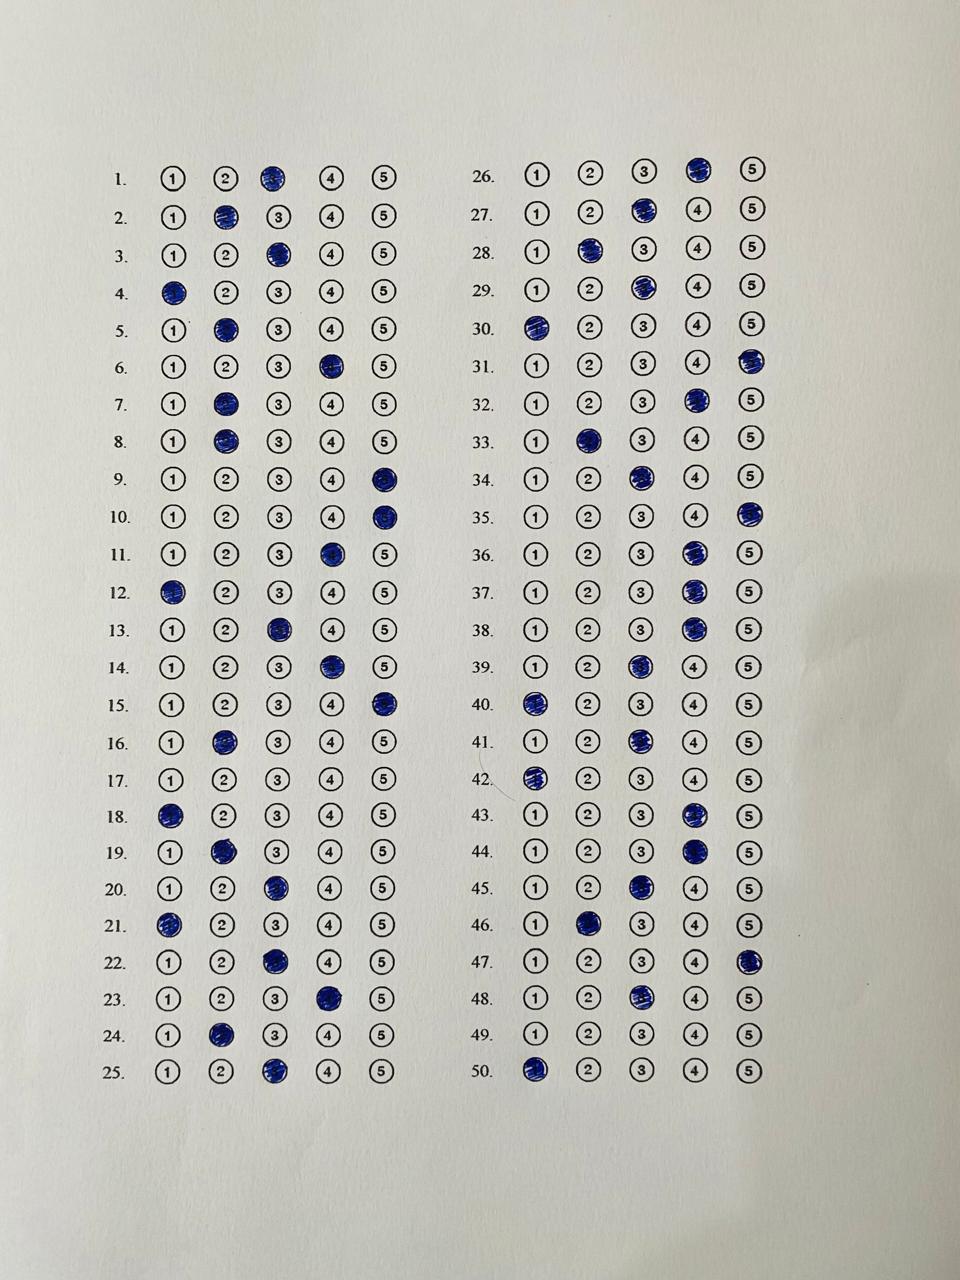 1. 1 2 3 4 5
2. 1 2 3 4 5
3. 1 2 3 4 5
4. 1 2 3 4 5
5. 1 2 3 4 5
6. 1 2 3 4 5
7. 1 2 3 4 5
8. 1 2 3 4 5
9. 1 2 3 4 5
10. 1 2 3 4 5
11. 1 2 3 4 5
12. 2 3 4 5
13. 1 2 3 4 5
14. 1 2 3 4 5
15. 1 2 3 4 5
16. 1 2 3 4 5
17. 1 2 3 4 5
18. 2 3 4 5
19. 1 3 4 5
20. 1 2 3 4 5
21. 1 2 3 4 5
22. 1 2 4 5
23. 1 2 3 5
24. 1 3 4 5
25. 1 2 3 4 5
26. 1 2 3 4 5
27. 1 2 3 4 5
28. 1 2 3 4 5
29. 1 2 3 4 5
30. 1 2 3 4 5
31. 1 2 3 4 5
32. 1 2 3 4 5
33. 1 2 3 4 5
34. 1 2 3 4 5
35. 1 2 3 4 5
36. 1 2 3 4 5
37. 1 2 3 4 5
38. 1 2 3 4 5
39. 1 2 3 4 5
40. 1 2 3 4 5
41. 1 2 3 4 5
42. 1 2 3 4 5
43. 1 2 3 4 5
44. 1 2 3 4 5
45. 1 2 3 4 5
46. 1 3 4 5
47. 1 2 3 4 5
48. 1 2 3 4 5
49. 1 2 3 4 5
50. 1 2 3 4 5